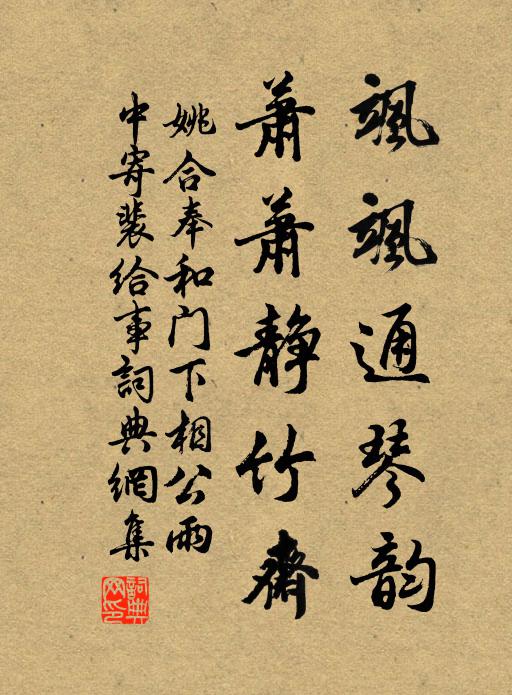 飒飒通琴韵
萧萧静竹斋
姚合奉和门下相公雨
中寄裴给事词典网集
词典网印